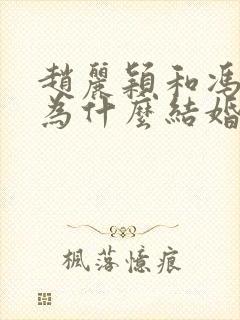 趙麗穎和馮
為什麼結婚
楓落憶痕